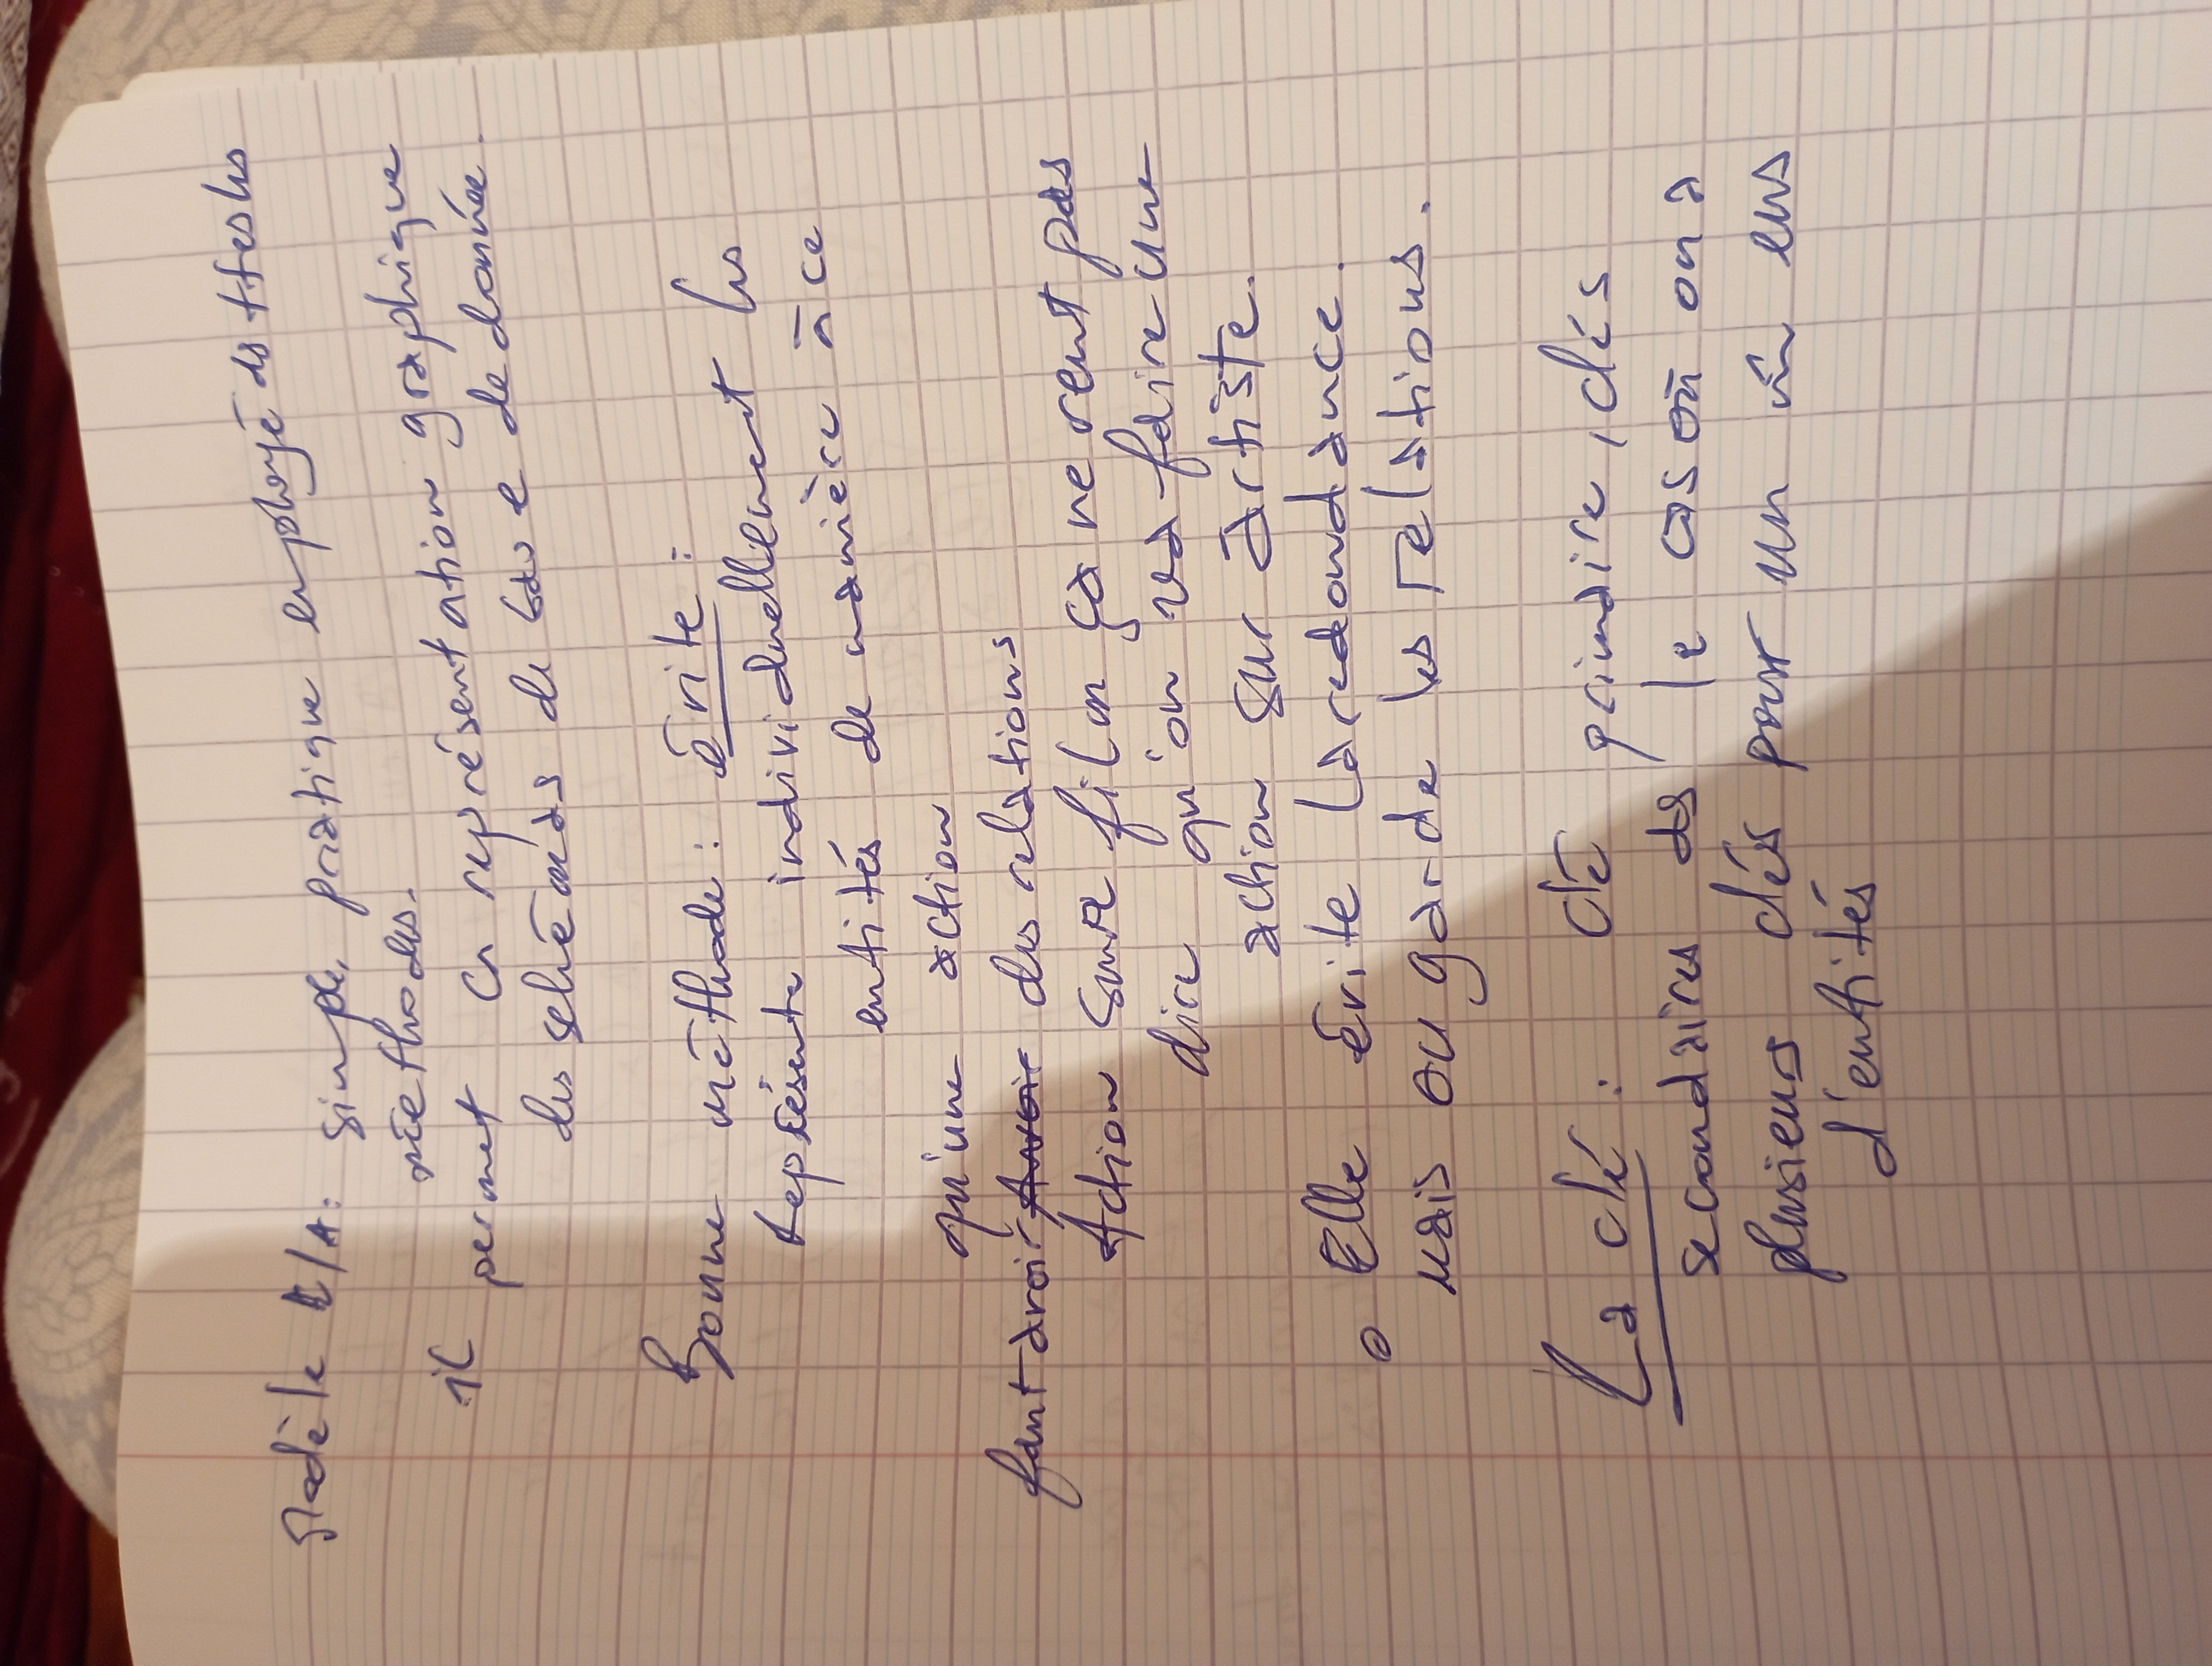 Modèle E/A : simple, pratique employé ds ttes les
méthodes.
il permet la représentation graphique
des schémas de base de donnée.
Bonne méthode : évite :
représente individuellement les
entités de manière à ce
qu'une action
faut avoir des relations
Action sur film ça ne veut pas
dire qu'on va faire une
action sur artiste.
o Elle évite la redondance.
mais on garde les relations.
La clé : clé primaire, clés
secondaires ds le cas où on a
plusieurs clés pour un m̂ ens
d'entités